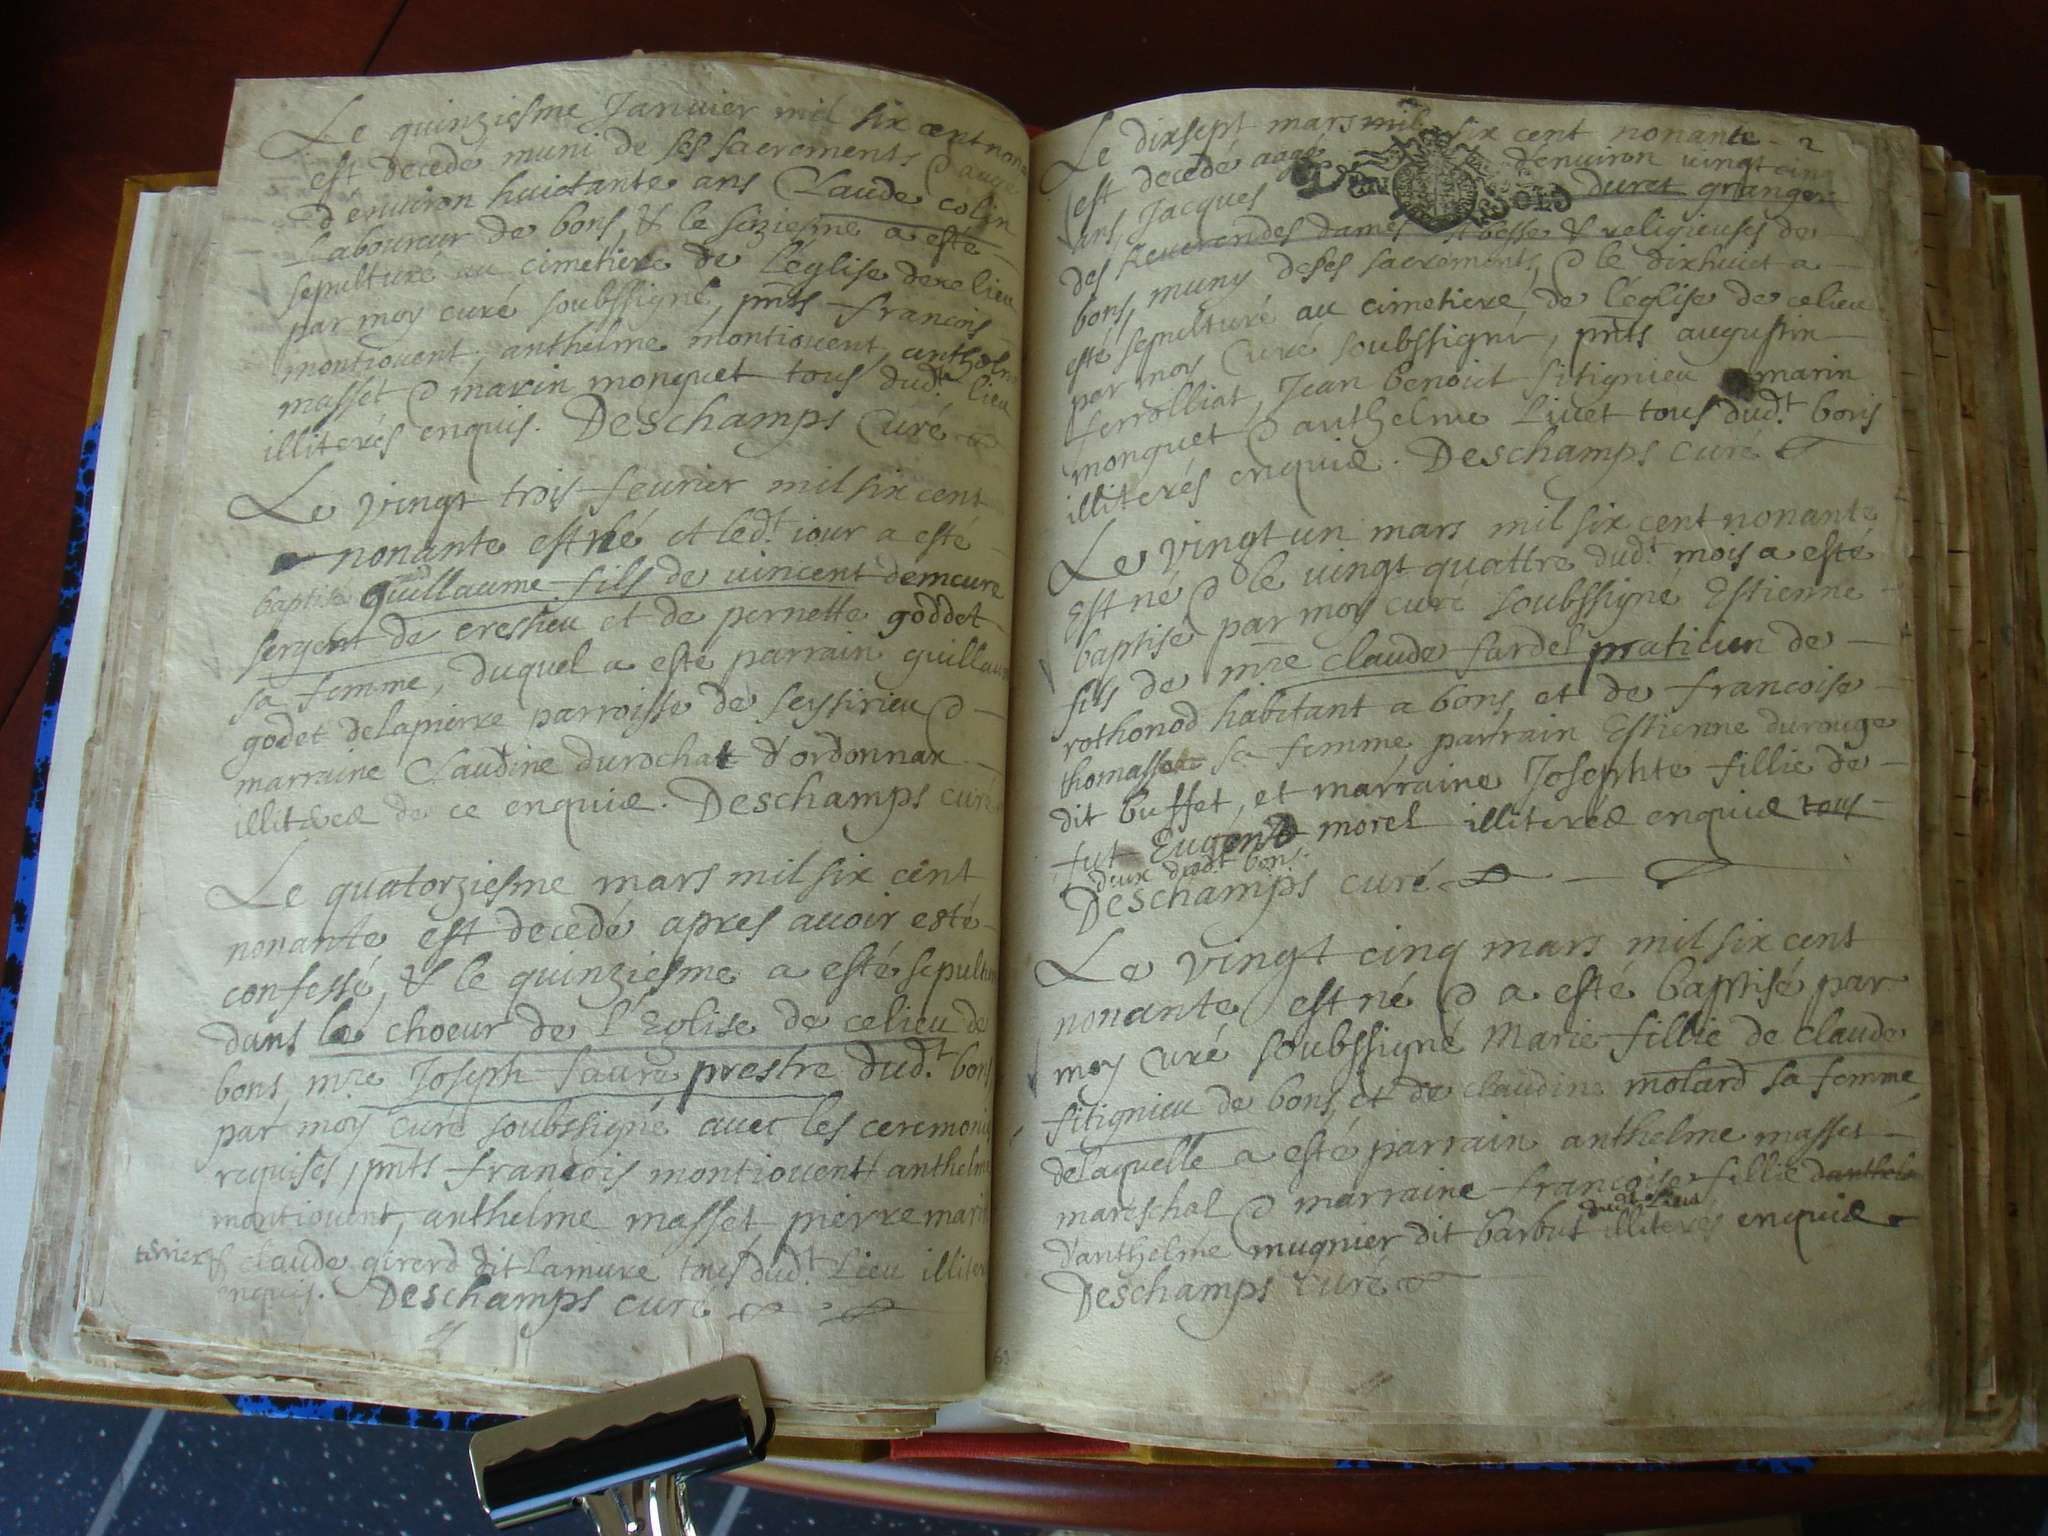 Le quinziesme Januier mil six cent nona
est decedé muni de ses sacrements & augé
d'enuiron huictante ans Claude colin
Laboureur de bons, & le seziesme a esté
sepulturé au cimetiere de L'eglise de ce lieu
par moy curé soubssigné, pnts francois
montiouent, anthelme montiouent, anthelm
masset & marin monguet tous dudt lieu
illiterés enquis. Deschamps Curé
Le vingt trois feurier mil six cent
nonante est né et ledt iour a esté
baptisé guillaume fils de vincent demeure
sergent de cressieu et de pernette goddet
sa femme, duquel a esté parrain guillaum
godet de lapierre parroisse de seyssirieu &
marraine Claudine durochat d'ordonnax
illiterés de ce enquis. Deschamps curé
Le quatorziesme mars mil six cent
nonante est decedé apres auoir esté
confessé, & le quinziesme a esté sepultur
dans le choeur de l'Eglise de celieu de
bons, mre Joseph faure prestre dudt bons
par moy curé soubssigné auec les ceremonies
requises, pnts francois montiouent, anthelme
montiouent, anthelme masset, pierre marin
& claude girerd dit Lamure tous dudt Lieu illiter
enquis. Deschamps curé
Le dixsept mars mil six cent nonante 2
est decedé aagé d'enuiron vingt cinq
ans, Jacques duret granger
des Reuerendes dames abbesse & religieuses de
bons, muny de ses sacrements, & le dixhuict a
esté sepulturé au cimetiere de l'eglise de celieu
par moy Curé soubssigné, pnts augustin
ferrolliat, Jean benoict sitignieu marin
monguet & anthelme Liuet tous dudt bons
illiterés enquis. Deschamps curé
Le vingt un mars mil six cent nonante
Est né & le vingt quattre dudt mois a esté
baptisé par moy curé soubssigné Estienne
fils de mre claude fardel praticien de
rothonod habitant a bons, et de francoise
thomasset sa femme parrain Estienne durouge
dit buffet, et marraine Josephte fillie de
fut Eugend morel illiterés enquis tous
deux dudt bons.
Deschamps curé
Le vingt cinq mars mil six cent
nonante, est né & a esté baptisé par
moy Curé soubssigné Marie fillie de claude
sitignieu de bons, et de claudine molard sa femme,
delaquelle a esté parrain anthelme masset
mareschal & marraine francoise fillie danthel
dudt Lieu
d'anthelme mugnier dit barbut illiterés enquis
Deschamps Curé